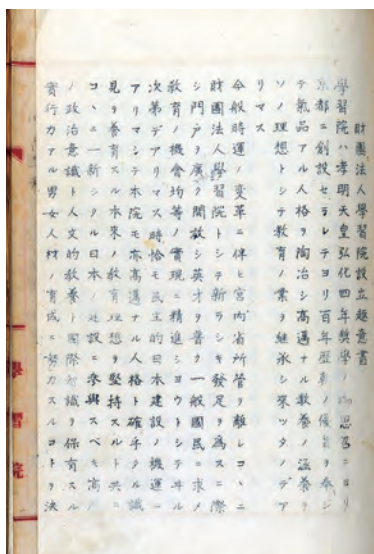 財團法人學習院設立趣意書
學習院ハ孝明天皇弘化四年奬學ノ御思召ニヨリ
京都ニ創設セラレテヨリ百年歴章ノ優旨ヲ奉シ
テ氣品アル人格ヲ陶冶シ高邁ナル教養ノ涵養ヲ
ソノ理想トシテ教育ノ業ヲ継承シ來ツタノデア
リマス
今般時運ノ変革ニ伴ヒ宮内省所管ヲ離レコヽニ
財團法人學習院トシテ新ラシキ發足ヲ爲スニ際
シ門戸ヲ廣ク開放シ英才ヲ普ク一般國民ニ求メ
教育ノ機會均等ノ實現ニ精進シヨウトシテヰル
次第デアリマス時恰モ民主的日本建設ノ機運ニ
アリマシテ本院モ亦高邁ナル人格ト確乎タル識
見ヲ養育スル本來ノ教育理想ヲ堅持スルト共ニ
コヽニ一新シタル日本ノ建設ニ参與スベキ高イ
ノ政治意識ト人文的教養ト國際知識ヲ保有スル
實行力アル男女人材ノ育成ニ努力スルコトヲ決
學習院